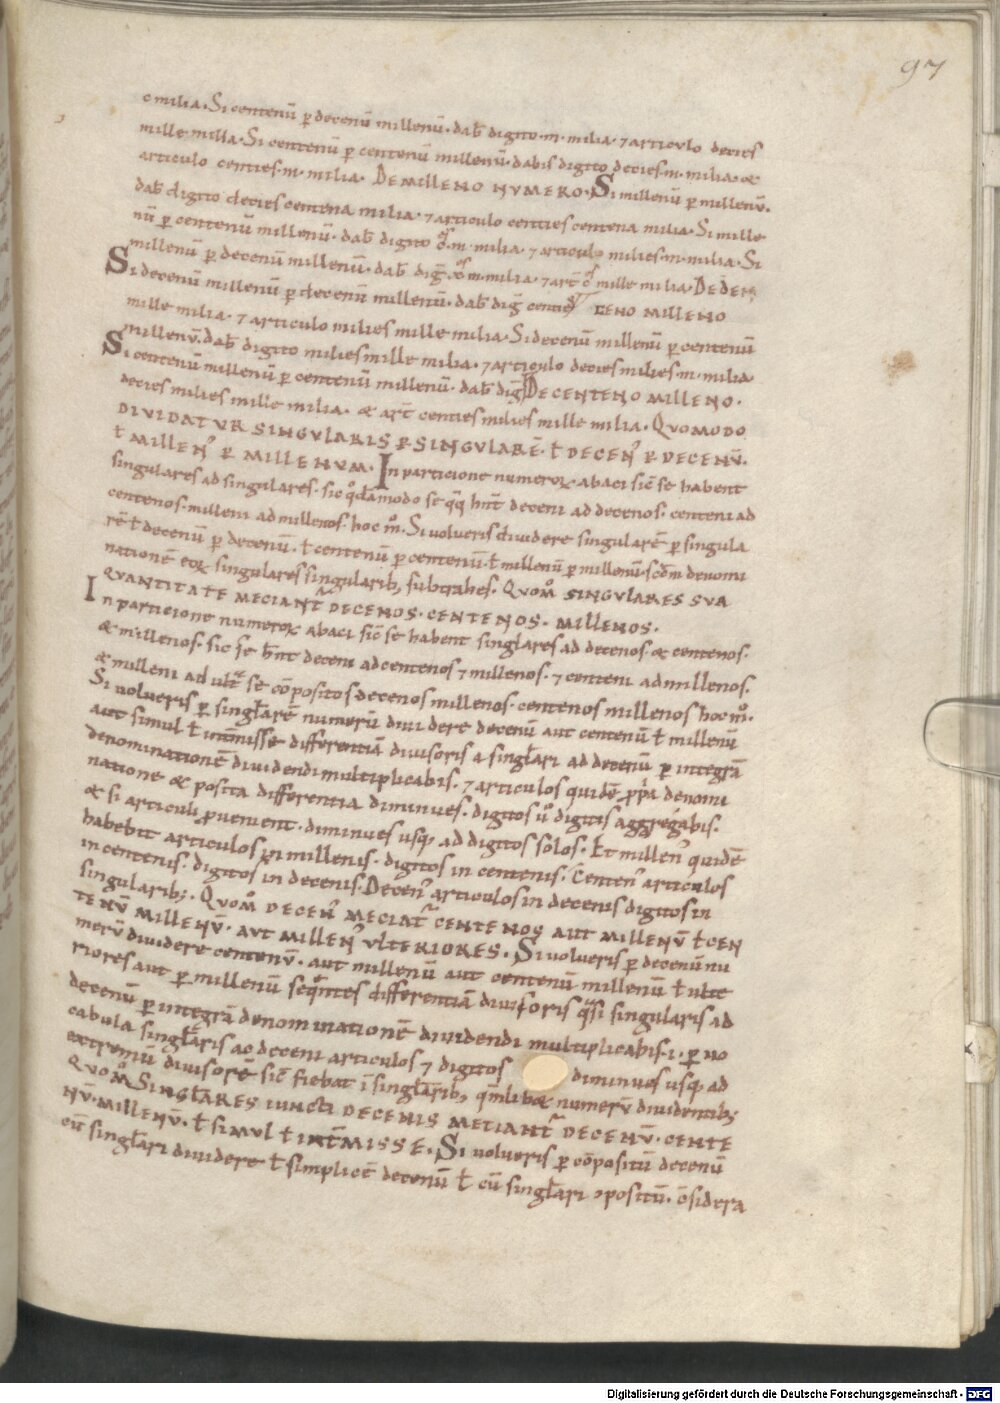 97
c milia. Si centenū ꝑ decenū millenū. dab̄ digito .m. milia. ⁊ articulo decies
mille milia. Si centenū ꝑ centenū millenū. dabis digito decies .m. milia. &
articulo centies .m. milia. DE MILLENO NVMERO. Si millenū ꝑ millenū.
dab̄ digito decies centena milia. ⁊ articulo centies centena milia. Si mille
nū ꝑ centenū millenū. dab̄ digito .m. milia. ⁊ articulo milies .m. milia. Si
millenū ꝑ decenū millenū. dab̄ diḡ m. milia. ⁊ art̄ mille milia. DE DECE
Si decenū millenū ꝑ decenū millenū. dab̄ diḡ centies NO MILLENO
mille milia. ⁊ articulo milies mille milia. Si decenū millenū ꝑ centenū
millenū. dab̄ digito milies mille milia. ⁊ articulo decies milies .m. milia.
Si centenū millenū ꝑ centenū millenū. dab̄ diḡ DE CENTENO MILLENO.
decies milies mille milia. & art̄ centies milies mille milia. QVOMODO
DIVIDATVR SINGVLARIS ꝑ SINGVLARĒ. ł DECEN᷒ ꝑ DECENV̄.
ł MILLEN᷒ ꝑ MILLENVM. In particione numeroꝝ abaci sic̄ se habent
singulares ad singulares. sic q̊dāmodo se q̨q̨ hn̄t deceni ad decenos. centeni ad
centenos. milleni ad millenos. hoc m̊. Si volueris dividere singularē ꝑ singula
rē ł decenū ꝑ decenū. ł centenū ꝑ centenū. ł millenū ꝑ millenū. scd̄m denomi
nationē eoꝝ singulares singularib; subtrahes. QVOM̊ SINGVLARES SVA
QVANTITATE MECIANT̄ DECENOS. CENTENOS. MILLENOS.
In particione numeroꝝ abaci sic̄ se habent singlares ad decenos & centenos.
& millenos. sic se hn̄t deceni ad centenos ⁊ millenos. ⁊ centeni ad millenos.
& milleni ad ult̄ se cōpositos decenos millenos. centenos millenos hoc m̊.
Si volueris ꝑ singlarē numerū dividere decenū aut centenū ł millenū
aut simul ł int̄misse differentiā divisoris a singlari ad decenū ꝑ integrā
denominationē dividendi multiplicabis. ⁊ articulos quidē ꝓp̄a denomi
natione & posita differentia diminues. digitos u̇ digitis aggregabis.
& si articuli ꝓvenient. diminues usq; ad digitos solos. Et millen᷒ quidē
habebit articulos in millenis. digitos in centenis. Centen᷒ articulos
in centenis. digitos in decenis. Decen᷒ articulos in decenis digitos in
singularib;. QVOM̊ DECEN᷒ MECIAT̄ CENTENOS AUT MILLENV̄ ł CEN
TENV̄ MILLENV̄. AVT MILLEN᷒ VLTERIORES. Si volueris ꝑ decenū nu
merū dividere centenū. aut millenū aut centenū millenū ł ulte
riores aut ꝑ millenū seq̄ntes differentiā divisoris q̄si singularis ad
decenū ꝑ integrā denominationē dividendi multiplicabis .i. ꝑ no
cabula singlaris ac deceni articulos ⁊ digitos diminues usq; ad
extremū divisorē sic̄ fiebat ī singlarib; q̄mlib& numerū dividentib;
QVOM̊ SINGLARES IUNCTI DECENIS METIANT̄ DECENV̄. CENTE
NV̄. MILLENV̄. ł SIMVL ł INT̄MISSE. Si volueris ꝑ cōpositū decenū
cū singlari dividere ł simplicē decenū ł cū singlari ɔpositū. cōsidera
Digitalisierung gefördert durch die Deutsche Forschungsgemeinschaft - DFG